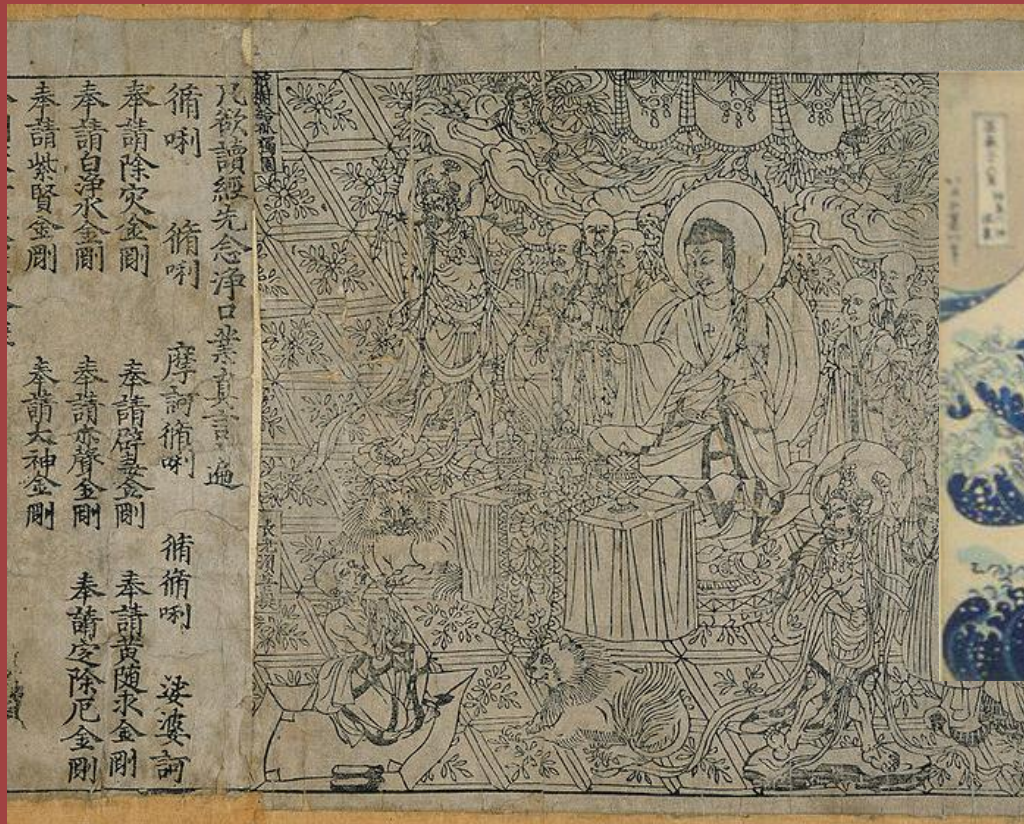 祇樹給孤獨園
長老須菩提
凡欲讀經先念淨口業真言一遍
脩唎 脩唎 摩訶脩唎 脩脩唎 娑婆訶
奉請除灾金剛 奉請辟毒金剛 奉請黃随求金剛
奉請白淨水金剛 奉請赤聲金剛 奉請定除厄金剛
奉請紫賢金剛 奉請大神金剛